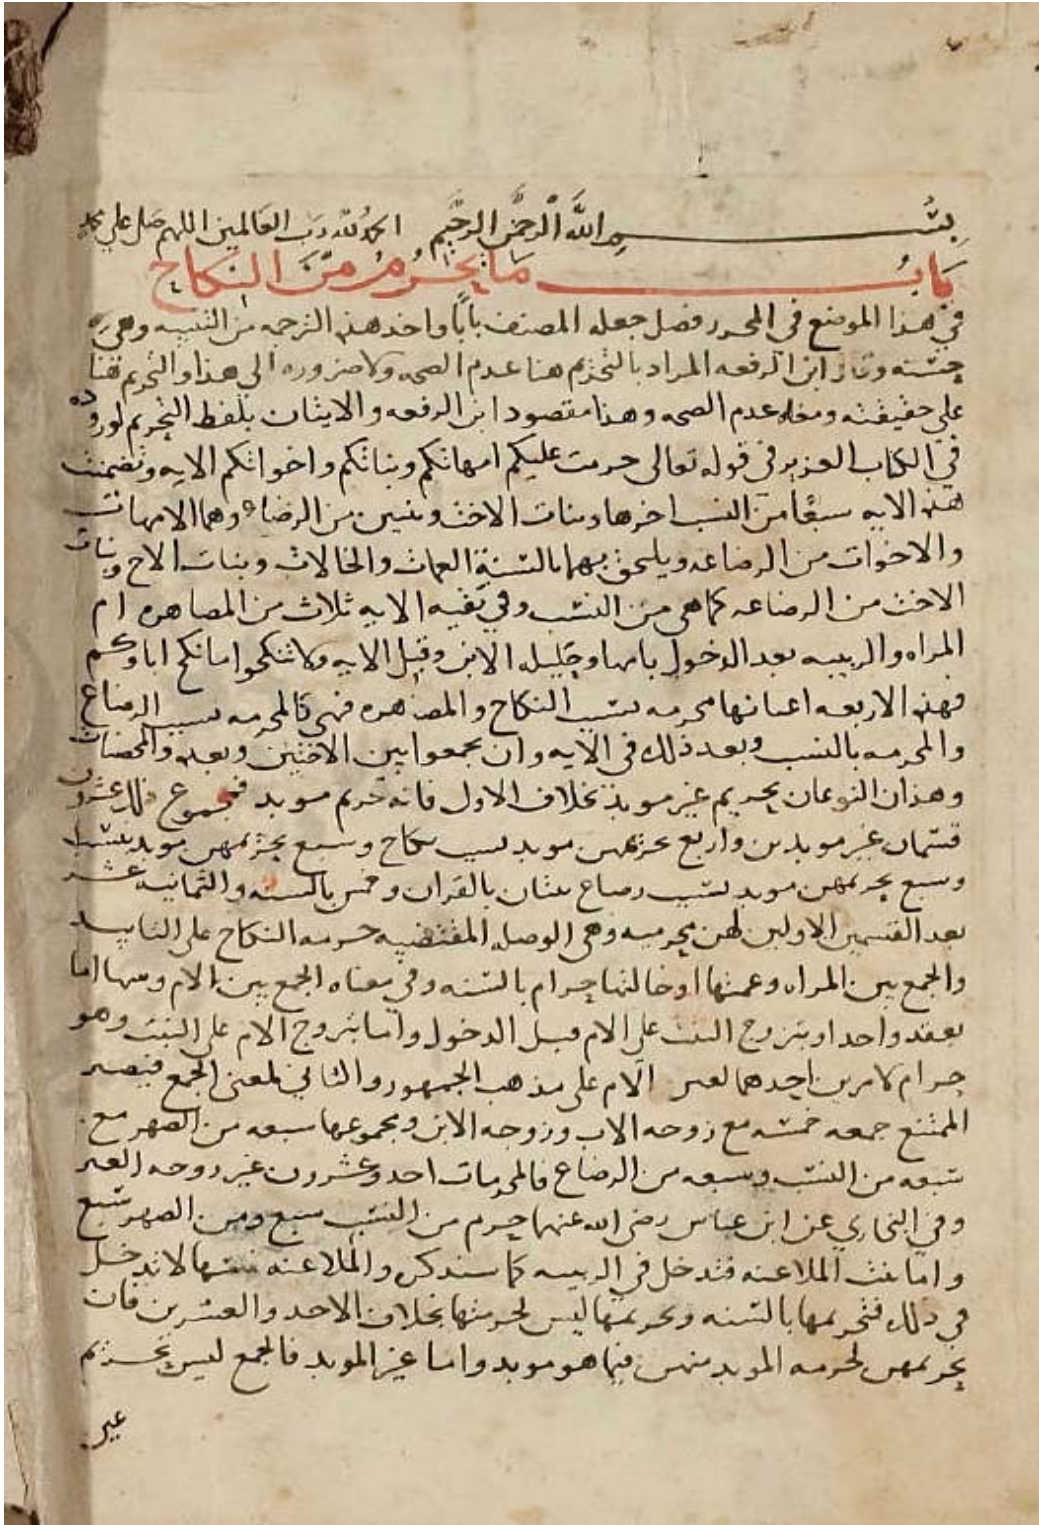 بسم الله الرحمن الرحيم الحمد لله رب العالمين اللهم صل علي محمد
باب ما يحرم من النكاح
في هذا الموضع في المحرر فصل جعله المصنف بابا واخذ هذه الترجمه من التنبيه وهي
حسنه وقال ابن الرفعه المراد بالتحريم هنا عدم الصحه ولا ضروره الي هذا والتحريم هنا
علي حقيقته ومعه عدم الصحه وهذا مقصود ابن الرفعه والايتان بلفظ التحريم لوروده
في الكتاب العزيز في قوله تعالى حرمت عليكم امهاتكم وبناتكم واخواتكم الايه وتضمنت
هذه الايه سبعا من النسب اخرها وبنات الاخت وثنتين من الرضاع وهما الامهات
والاخوات من الرضاعه ويلحق بهما بالسنة العمات والخالات وبنات الاخ وبنات
الاخت من الرضاعه كما هي من النسب وفي بقيه الايه ثلاث من المصاهره ام
المراه والربيبه بعد الدخول بامها وحليله الابن وقبل الايه ولا تنكحوا ما نكح اباوكم
فهذه الاربعه اعيانها محرمه بسبب النكاح والمصاهره فهي كالمحرمه بسبب الرضاع
والمحرمه بالنسب وبعد ذلك في الايه وان تجمعوا بين الاختين وبعده والمحصنات
وهذان النوعان تحريم غير موبد بخلاف الاول فانه تحريم موبد فمجموع ذلك عشرون
قسمان غير موبدين واربع تحريمهن موبد بسبب نكاح وسبع تحريمهن موبد بنسب
وسبع تحريمهن موبد بسبب رضاع ثنتان بالقران وخمس بالسنه والثمانيه عشر
بعد القسمين الاولين لهن محرميه وهي الوصله المقتضيه حرمه النكاح علي التابيد
والجمع بين المراه وعمتها او خالتها حرام بالسنه وفي معناه الجمع بين الام وبنتها اما
بعقد واحد او بتزوج البنت علي الام قبل الدخول واما بتزوج الام علي البنت وهو
حرام لامرين احدهما لعين الام علي مذهب الجمهور والثاني لمعني الجمع فيصير
الممتنع جمعه خمسه مع زوجه الاب وزوجه الابن ومجموعها سبعه من الصهر مع
سبعه من النسب وسبعه من الرضاع فالمحرمات احد وعشرون غير زوجه الغير
وفي البخاري عن ابن عباس رضي الله عنهما حرم من النسب سبع ومن الصهر سبع
واما بنت الملاعنه فتدخل في الربيبه كما سنذكره والملاعنه نفسها لا تدخل
في ذلك فتحريمها بالسنه وتحريمها ليس لحرمتها بخلاف الاحد والعشرين فان
تحريمهن لحرمه الموبد منهن فيما هو موبد واما غير الموبد فالجمع ليس تحريم
عين